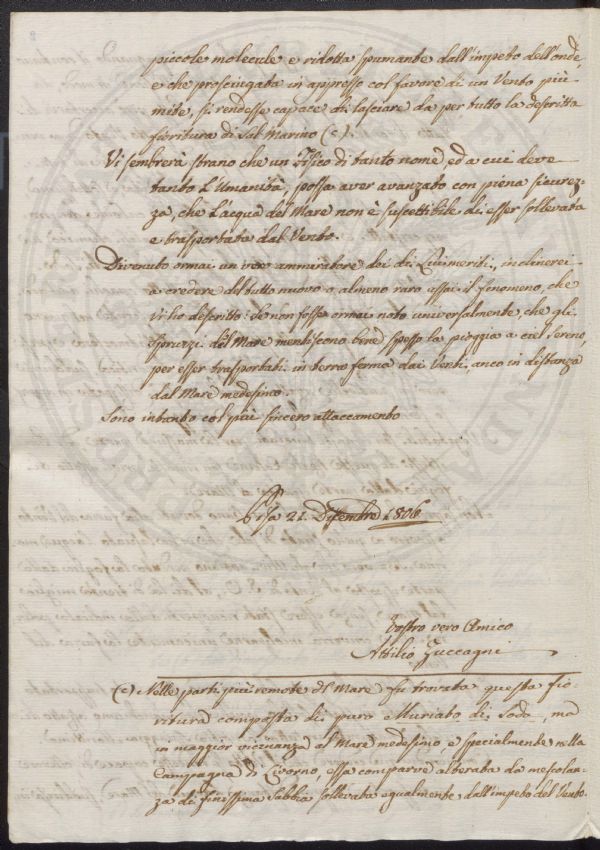 piccole molecule e ridotta spumante dall'impeto dell'onde,
e che prosciugata in appresso col favore di un Vento più
mite, si rendesse capace di lasciare da per tutto la descritta
fioritura di Sal Marino (c).
Vi sembrerà strano che un Fisico di tanto nome, ed a cui deve
tanto L'Umanità, possa aver avanzato con piena sicurez-
za, che L'acqua del Mare non è suscettibile di esser sollevata
e trasportata dal Vento.
Divenuto ormai un vero ammiratore dei di Lui meriti, inclinerei
a credere del tutto nuovo o almeno raro assai il fenomeno, che
Vi ho descritto: Se non fosse ormai noto universalmente, che gli
Spruzzi del Mare mentiscono bene spesso la pioggia a ciel Sereno,
per esser trasportati in terra ferma dai Venti, anco in distanza
dal Mare medesimo.
Sono intanto col più sincero attaccamento
21. 1806
Vostro vero Amico
Attilio Zuccagni
(c) Nelle parti più remote dl Mare fu trovata questa fio-
ritura composta di puro Muriato di Soda, ma
in maggior vicinanza al Mare medesimo, e specialmente nella
Campagna di Livorno, essa comparve alterata da mescolan-
za di finissima Sabbia sollevata egualmente dall'impeto del Vento.